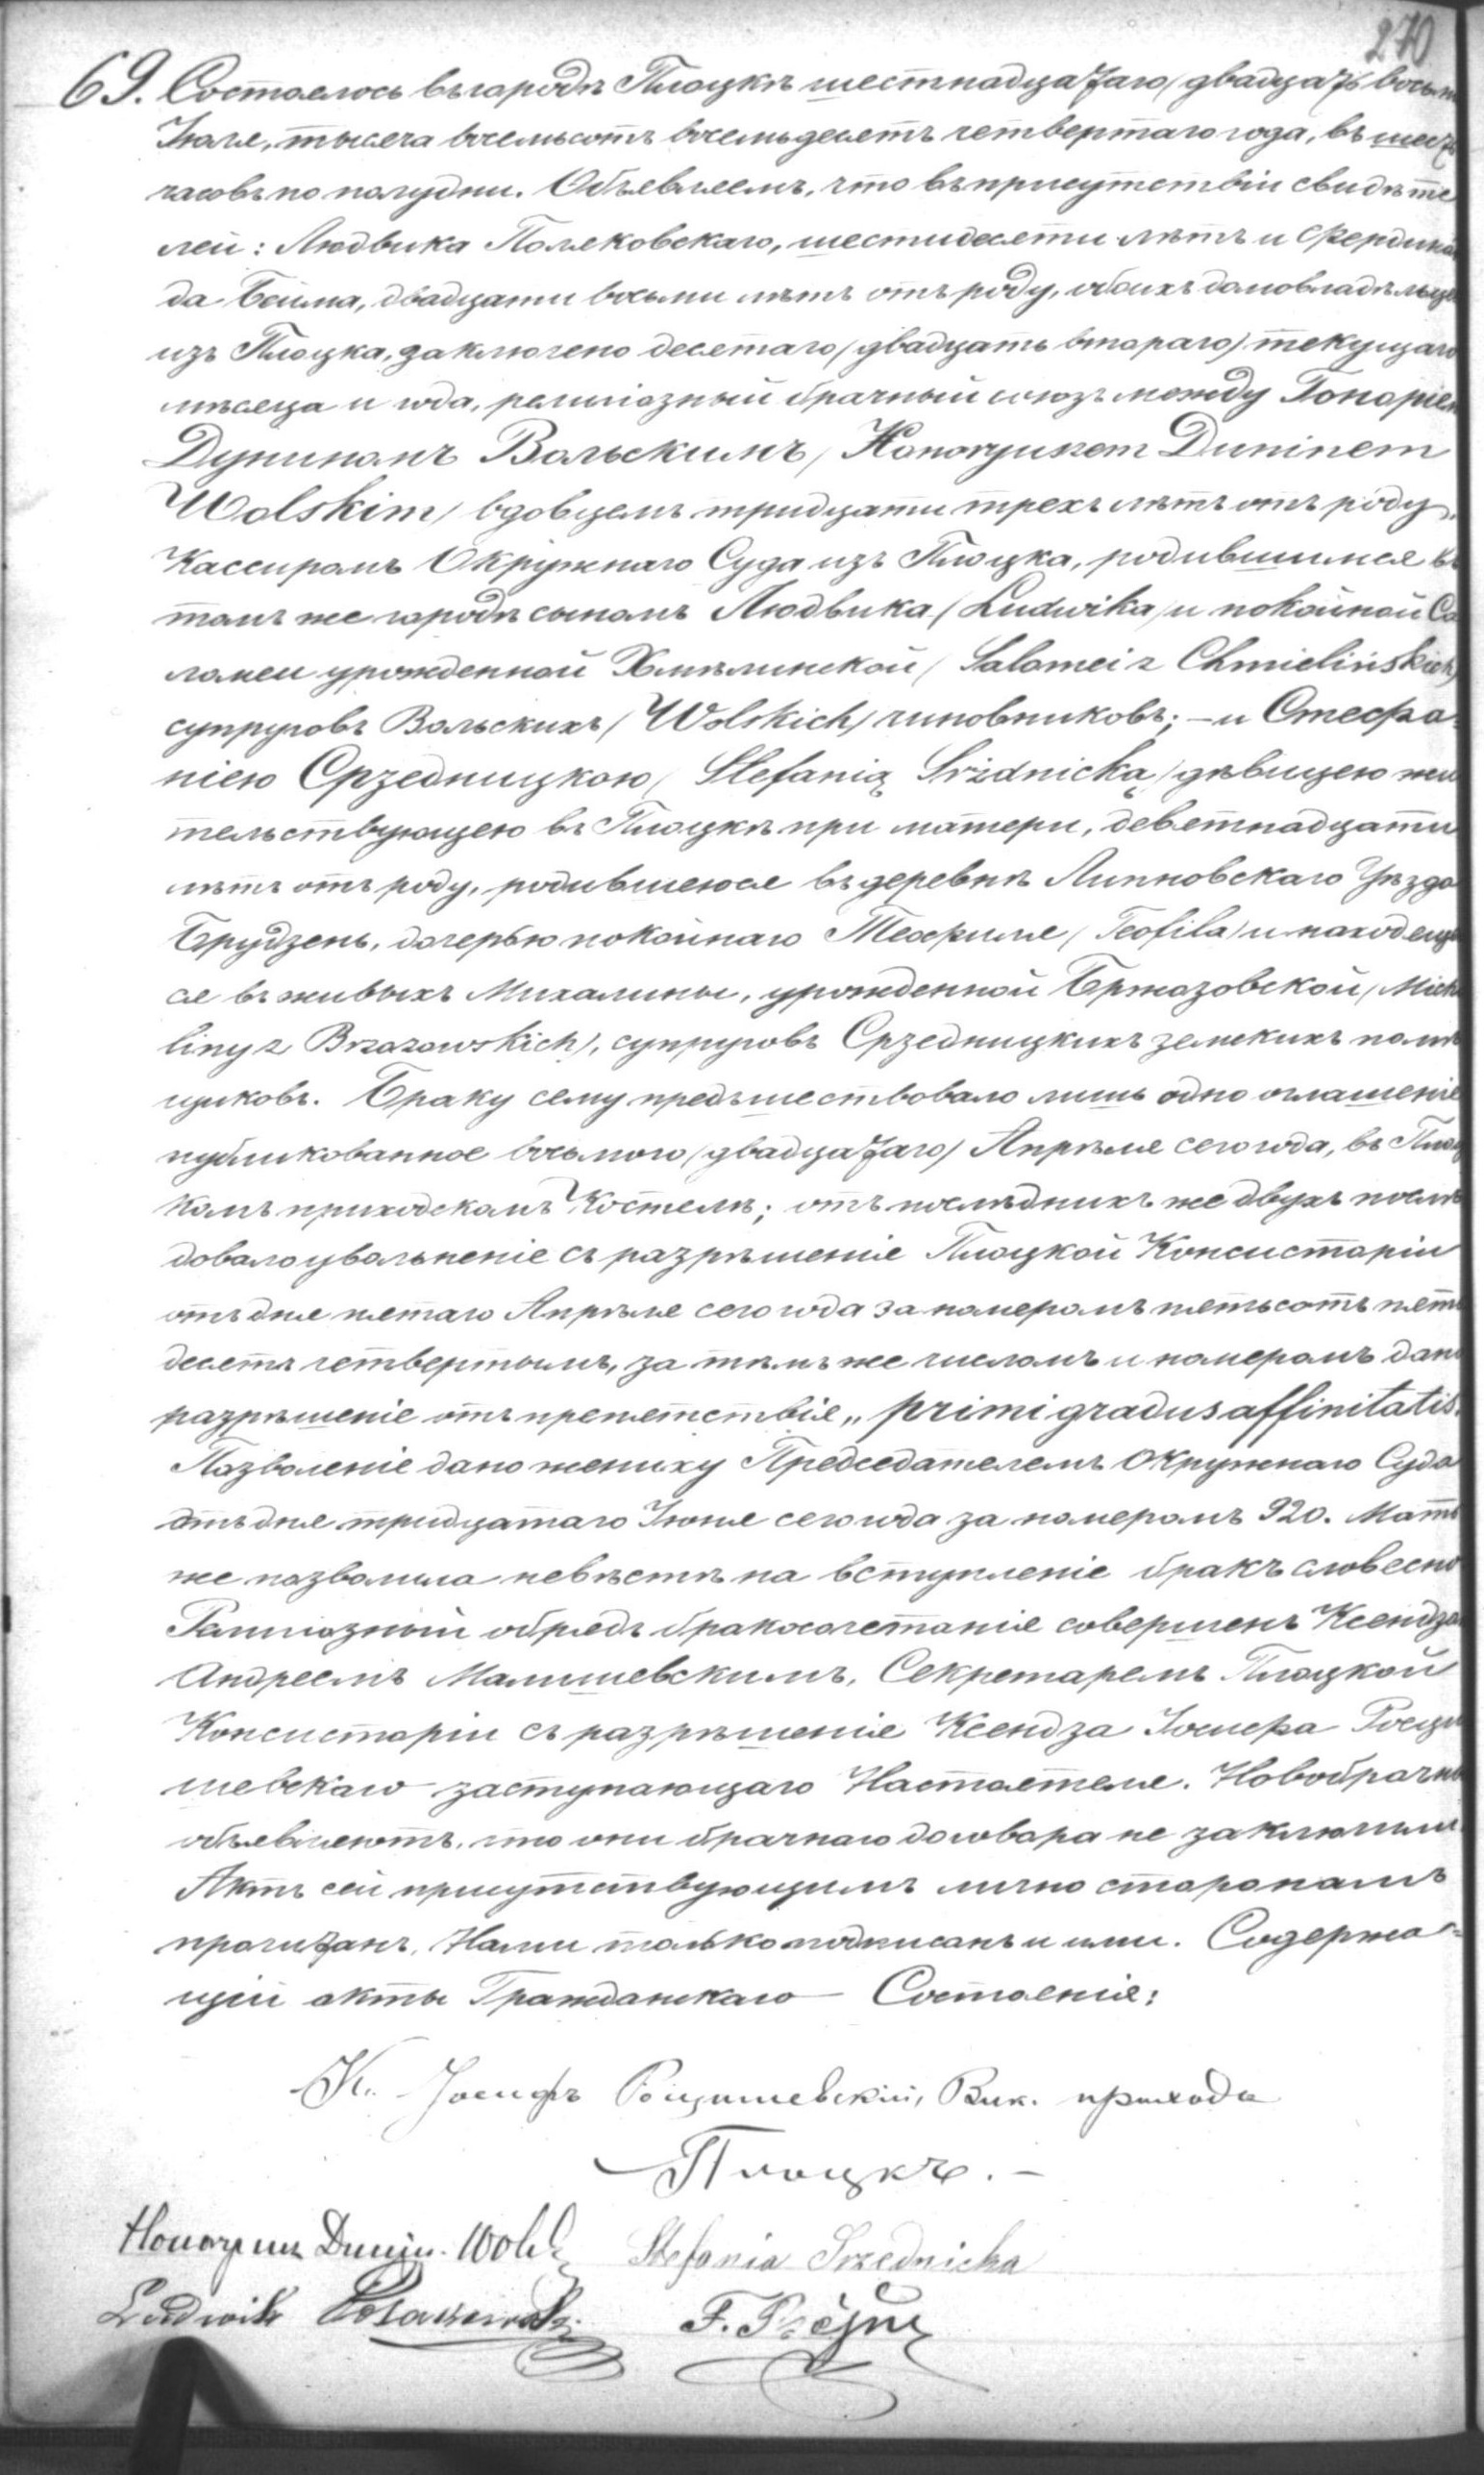 270
69. Состоялось въ городѣ Плоцкѣ шестнадцатаго (двадцать восьм
Іюля, тысяча восемьсотъ восемьдесятъ четвертаго года, въ шесть
часовъ по полудни. Объявляемъ, что въ присутствіи свидѣте
лей: Людвика Поляковскаго, шестидесяти лѣтъ и Фердинан
да Бейма, двадцати восьми лѣтъ отъ роду, обоихъ домовладѣльце
изъ Плоцка, заключено десятаго (двадцать втораго) текущаго
мѣсяца и года, религіозный брачный союзъ между Гонаріем
Дуниномъ Вольскимъ (Honorjuszem Duninem
Wolskim) вдовцемъ тридцати трехъ лѣтъ отъ роду,
Кассиромъ Окружнаго Суда изъ Плоцка, родившимся въ
томъ же городѣ сыномъ Людвика (Ludwika) и покойной Са
ломеи урожденной Хмѣлинской (Salomei z Chmielińskich)
супруговъ Вольскихъ (Wolskich) чиновниковъ; – и Стефа-
ніею Срзедницкою (Stefanią Srzednicką) дѣвицею жи
тельствующею въ Плоцкѣ при матери, девятнадцати
лѣтъ отъ роду, родившеюся въ деревнѣ Липновскаго Уѣзда
Брудзень, дочерью покойнаго Теофиля (Teofila) и находящей
ся въ живыхъ Михалины, урожденной Бржозовской (Micha
liny z Brzozowskich), супруговъ Срзедницкихъ земскихъ помѣ
щиковъ. Браку сему предшествовало лишь одно оглашеніе
публикованное восьмого (двадцатаго) Апрѣля сего года, въ Плоц
комъ приходскомъ Костелѣ; отъ послѣднихъ же двухъ послѣ
довало увольненіе съ разрѣшенія Плоцкой Консисторіи
отъ дня пятаго Апрѣля сего года за номеромъ пятьсотъ пять
десятъ четвертымъ, за тѣмъ же числомъ и номеромъ дано
разрѣшеніе отъ препятствія „primi gradus affinitatis.
Позволеніе дано жениху Предсѣдателемъ Окружнаго Суда
отъ дня тридцатаго Іюня сего года за номеромъ 920. Мать
же позволила невѣстѣ на вступленіе бракъ словесно
Религіозный обрядъ бракосочетанія совершенъ Ксендзо
Андреемъ Малишевскимъ, Секретаремъ Плоцкой
Консисторіи съ разрѣшенія Ксендза Іосифа Росци
шевскаго заступающаго Настоятеля. Новобрачны
объявляютъ, что они брачнаго договора не заключили
Актъ сей присутствующимъ лично сторонамъ
прочитанъ, Нами только подписанъ и ими. Содержа-
щій акты Гражданскаго Состоянія:
Кс. Іосифъ Росцишевскій, Вик. прихода
Плоцкъ. –
Honorjusz Dunin Wolski Stefania Srzednicka
Ludwik Polakowski F.